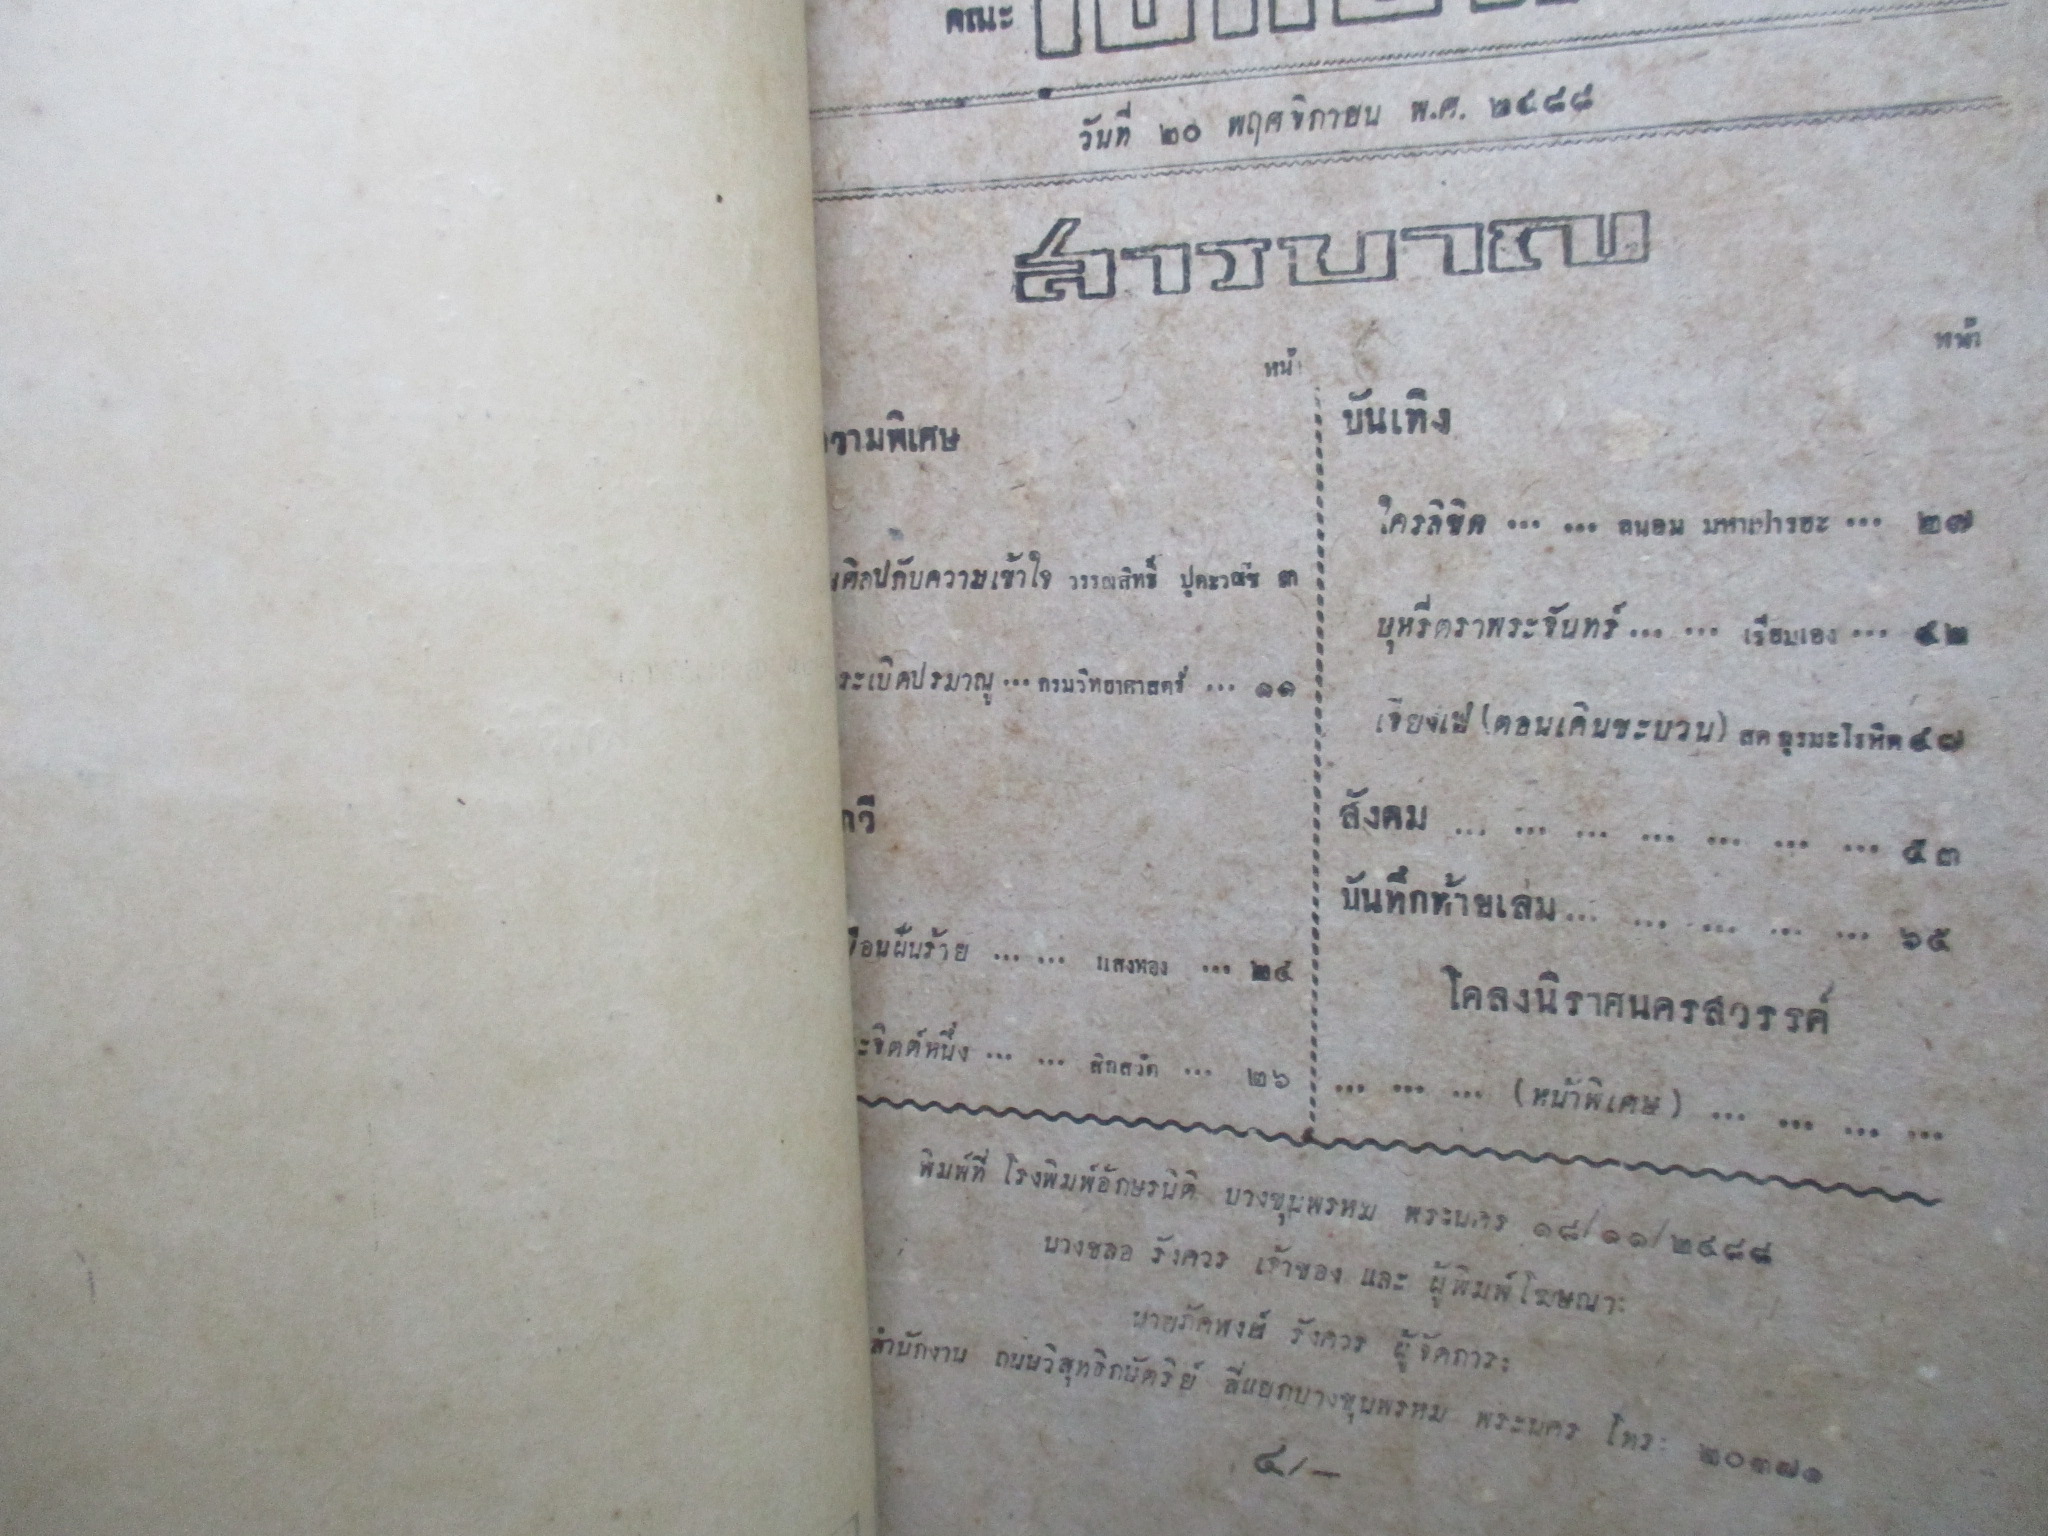 คณะ
วันที่ ๒๐ พฤศจิกายน พ.ศ. ๒๔๘๘
สารบาญ
หน้า
ความพิเศษ
ศิลปกับความเข้าใจ วรรณสิทธิ์ ปุคะวนัช ๓
ระเบิดปรมาณู ... กรมวิทยาศาสตร์ ... ๑๑
กวี
ฝันร้าย ... ... แสงทอง ... ๒๔
จิตต์หนึ่ง ... ... ... ๒๖
หน้า
บันเทิง
ใครลิขิต ... ... ถนอม มหาเปารยะ ... ๒๗
บุหรี่ตราพระจันทร์ ... ... เรียมเอง ... ๔๒
เจียงเฟ (ตอนเดินขะบวน) สด กูรมะโรหิต ๔๗
สังคม ... ... ... ... ... ... ... ๕๓
บันทึกท้ายเล่ม ... ... ... ... ... ๖๕
โคลงนิราศนครสวรรค์
... ... ... (หน้าพิเศษ) ... ... ... ...
พิมพ์ที่ โรงพิมพ์อักษรนิติ บางขุนพรหม พระนคร ๑๘/๑๑/๒๔๘๘
นางชลอ รังควร เจ้าของ และ ผู้พิมพ์โฆษณา
รังควร ผู้จัดการ
สำนักงาน ถนนวิสุทธิกษัตริย์ สี่แยกบางขุนพรหม พระนคร โทร: ๒๐๓๗๑
๔/-